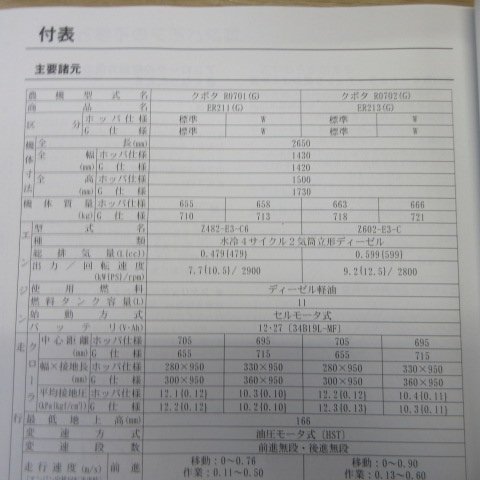 付表
主要諸元
農機型式名 クボタ RO701(G) クボタ RO702(G)
商品名 ER211(G) ER213(G)
区分 ホッパ仕様 標準 W 標準 W
G仕様 標準 W 標準 W
機体寸法 全長(mm) 2650
全幅(mm) ホッパ仕様 1430
G仕様 1420
全高(mm) ホッパ仕様 1500
G仕様 1730
機体質量(kg) ホッパ仕様 655 658 663 666
G仕様 710 713 718 721
エンジン 型式名 Z482-E3-C6 Z602-E3-C
種類 水冷4サイクル2気筒立形ディーゼル
総排気量(L{cc}) 0.479{479} 0.599{599}
出力/回転速度(kW{PS}/rpm) 7.7{10.5}/2900 9.2{12.5}/2800
使用燃料 ディーゼル軽油
燃料タンク容量(L) 11
始動方式 セルモータ式
バッテリ(V・Ah) 12・27〔34B19L-MF〕
走行 クローラ 中心距離(mm) ホッパ仕様 705 695 705 695
G仕様 655 715 655 715
幅×接地長(mm) ホッパ仕様 280×950 330×950 280×950 330×950
G仕様 300×950 360×950 300×950 360×950
平均接地圧(kPa{kgf/cm²}) ホッパ仕様 12.1{0.12} 10.3{0.10} 12.2{0.12} 10.4{0.11}
G仕様 12.2{0.12} 10.2{0.10} 12.3{0.12} 10.3{0.11}
最低地上高(mm) 166
変速方式 油圧モータ式〔HST〕
変速段数 前進無段・後進無段
走行速度(m/s) 前進 移動:0～0.76 移動:0～0.90
作業:0.11～0.50 作業:0.13～0.60